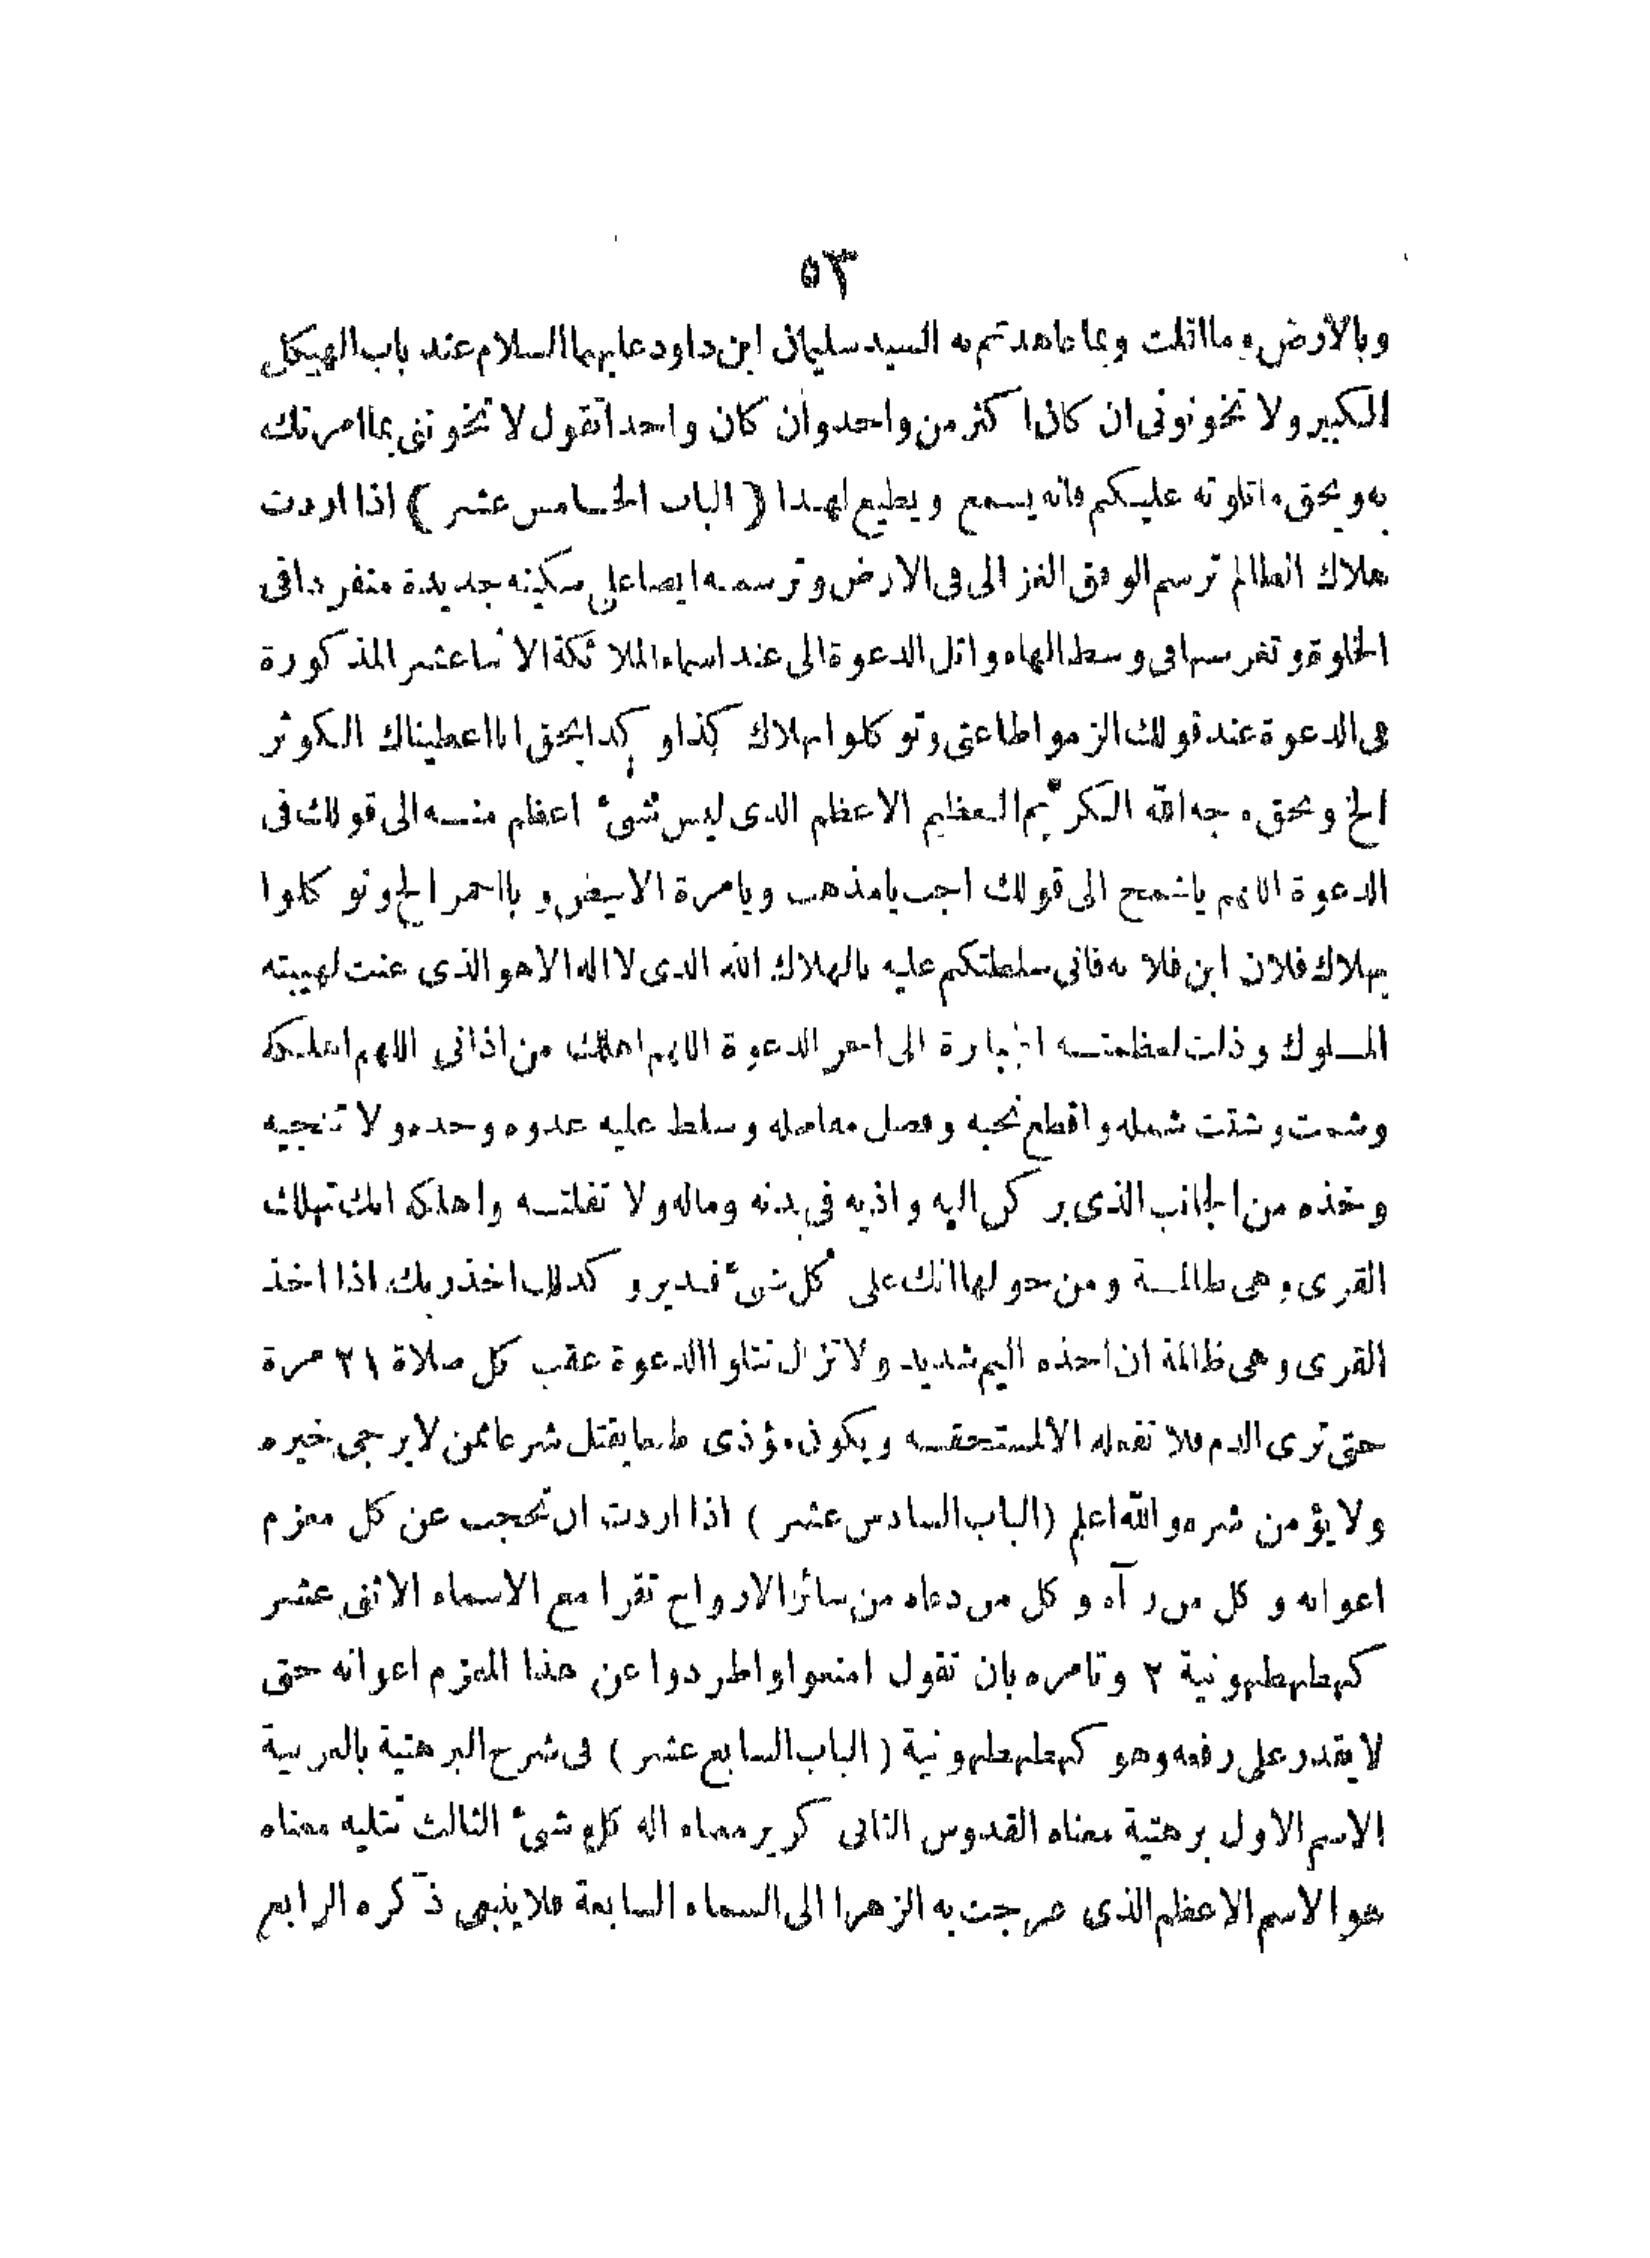 ٥٣
وبالأرض وما اقلت وبما عاهدتم به السيد سليمان ابن داود عليهما السلام عند باب الهيكل
الكبير ولا تخونونى ان كان اكثر من واحد وان كان واحدا تقول لا تخوننى بما امرتك
به وبحق ما تلوته عليكم فانه يسمع ويطيع لهذا ( الباب الخامس عشر ) اذا اردت
هلاك الظالم ترسم الوفق الغزالى فى الارض وترسمه ايضا على سكينه جديدة منفردا فى
الخلوة وتغرسها فى وسط الهاء واتل الدعوة الى عند اسماء الملائكة الاثنا عشر المذكورة
فى الدعوة عند قولك الزموا طاعتى وتوكلوا بهلاك كذا وكذا بحق انا اعطيناك الكوثر
الخ وبحق وجه الله الكريم العظيم الاعظم الذى ليس شئ اعظم منه الى قولك فى
الدعوة اللهم ياشمخ الى قولك اجب يامذهب ويامرة الابيض و يااحمر الخ وتوكلوا
بهلاك فلان ابن فلانه فانى سلطتكم عليه بالهلاك الله الذى لا اله الا هو الذى عنت لهيبته
الملوك وذلت لعظمته الجبارة الى اخر الدعوة اللهم اهلك من اذانى اللهم اهلكه
وشمت وشتت شمله واقطع نحبه وفصل مفاصله وسلط عليه عدوه وحده ولا تنجيه
وخذه من الجانب الذى يركن اليه واذيه فى بدنه وماله ولا تفلته واهلكه انك تهلك
القرى وهى ظالمة ومن حولها انك على كل شئ قدير وكذلك اخذ ربك اذا اخذ
القرى وهى ظالمة ان اخذه اليم شديد ولا تزال تتلوا الدعوة عقب كل صلاة ٢١ مرة
حتى ترى الدم فلا تفعله الا لمستحقه ويكون مؤذى طبعا يقتل شرعا ممن لا يرجى خيره
ولا يؤمن شره والله اعلم ( الباب السادس عشر ) اذا اردت ان تحجب عن كل معزم
اعوانه وكل من رآه وكل من دعاه من سائر الارواح تقرا مع الاسماء الاثنى عشر
كهطهطهونية ٢ وتامره بان تقول امنعوا واطردوا عن هذا المعزم اعوانه حتى
لا يقدر على رفعه وهو كهطهطهونية ( الباب السابع عشر ) فى شرح البرهتية بالعربية
الاسم الاول برهتية معناه القدوس الثانى كرير معناه اله كل شئ الثالث تتليه معناه
هو الاسم الاعظم الذى عرجت به الزهرا الى السماء السابعة فلا ينبغى ذكره الرابع